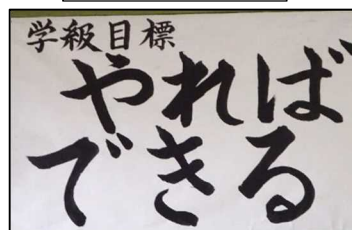 学級目標
やれば
できる